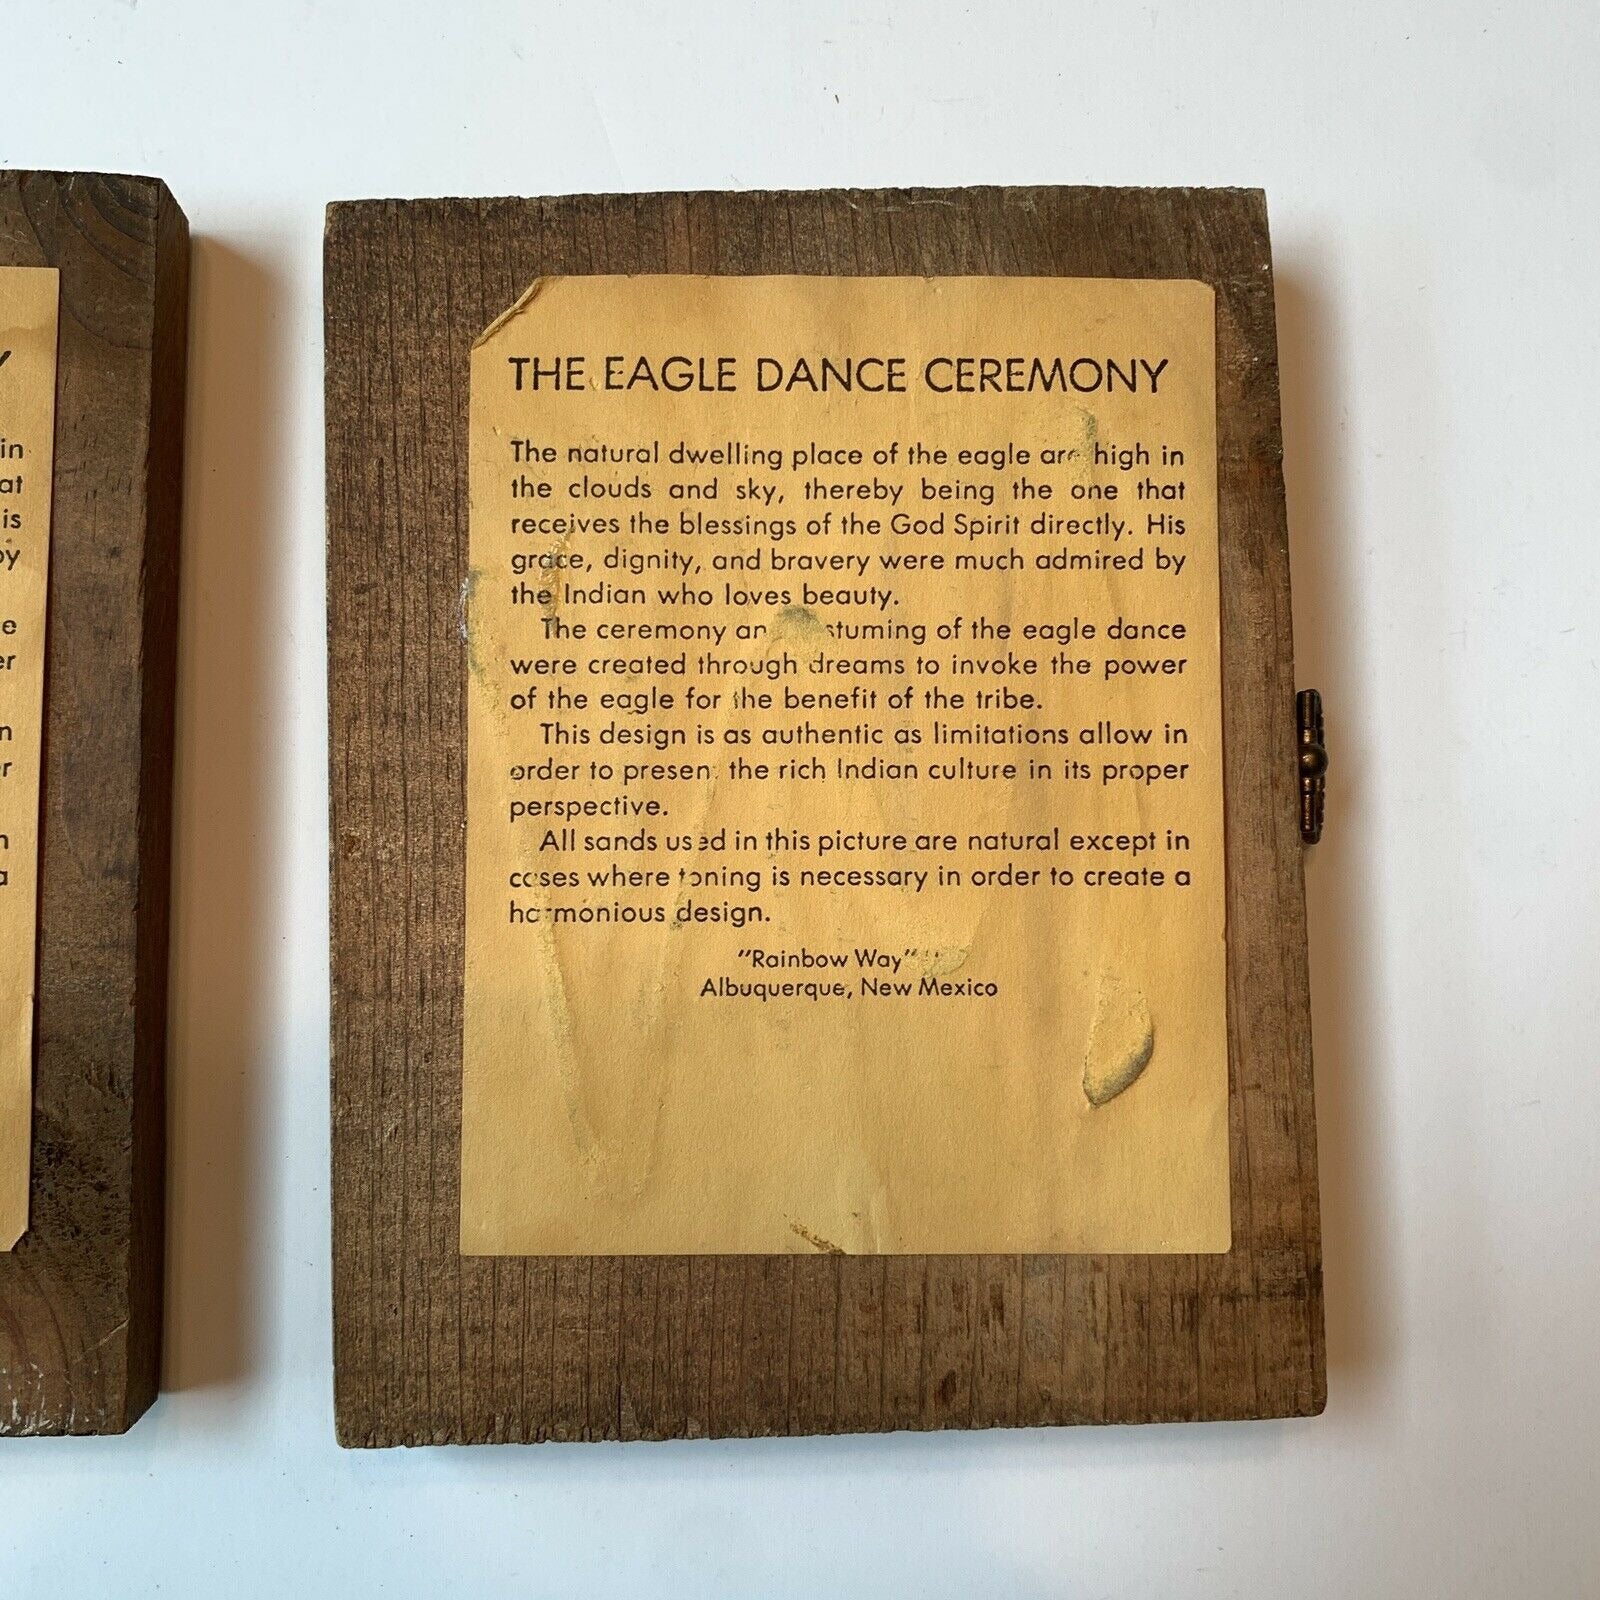 THE EAGLE DANCE CEREMONY
The natural dwelling place of the eagle are high in
the clouds and sky, thereby being the one that
receives the blessings of the God Spirit directly. His
grace, dignity, and bravery were much admired by
the Indian who loves beauty.
The ceremony and costuming of the eagle dance
were created through dreams to invoke the power
of the eagle for the benefit of the tribe.
This design is as authentic as limitations allow in
order to present the rich Indian culture in its proper
perspective.
All sands used in this picture are natural except in
cases where toning is necessary in order to create a
harmonious design.
"Rainbow Way"
Albuquerque, New Mexico
in
is
by
a